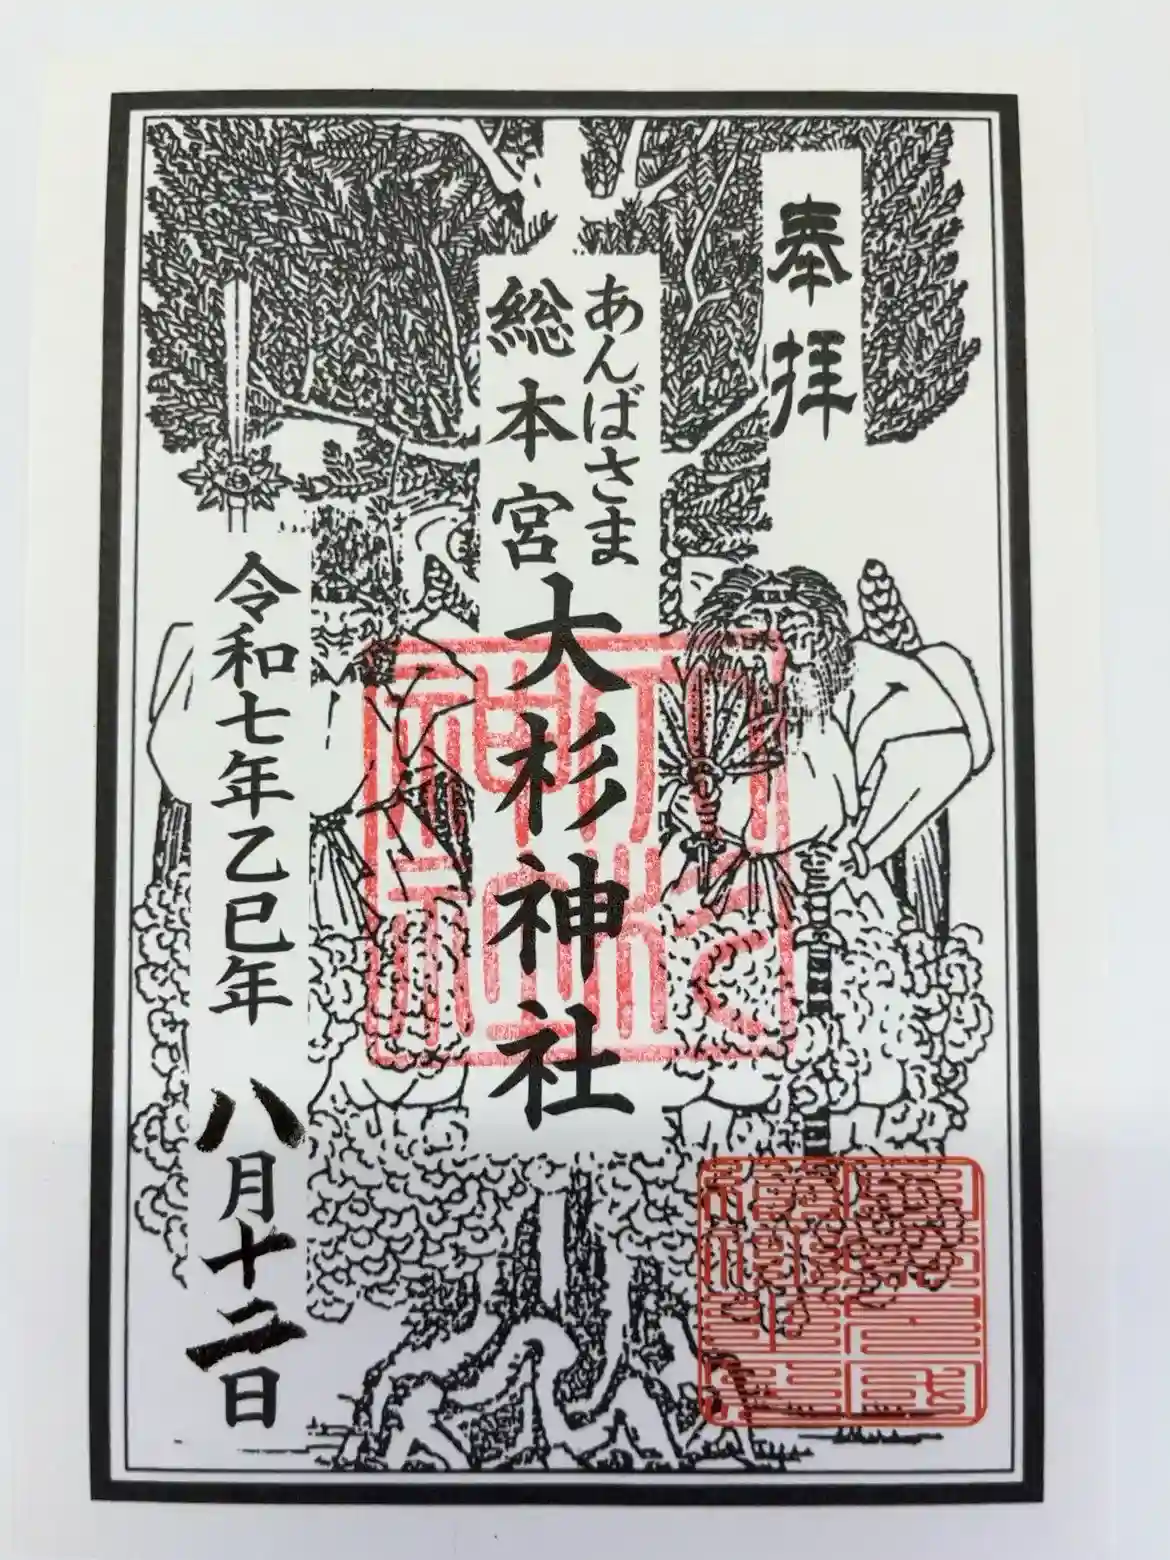 奉拝
あんばさま
総本宮大杉神社
令和七年乙巳年 八月十二日